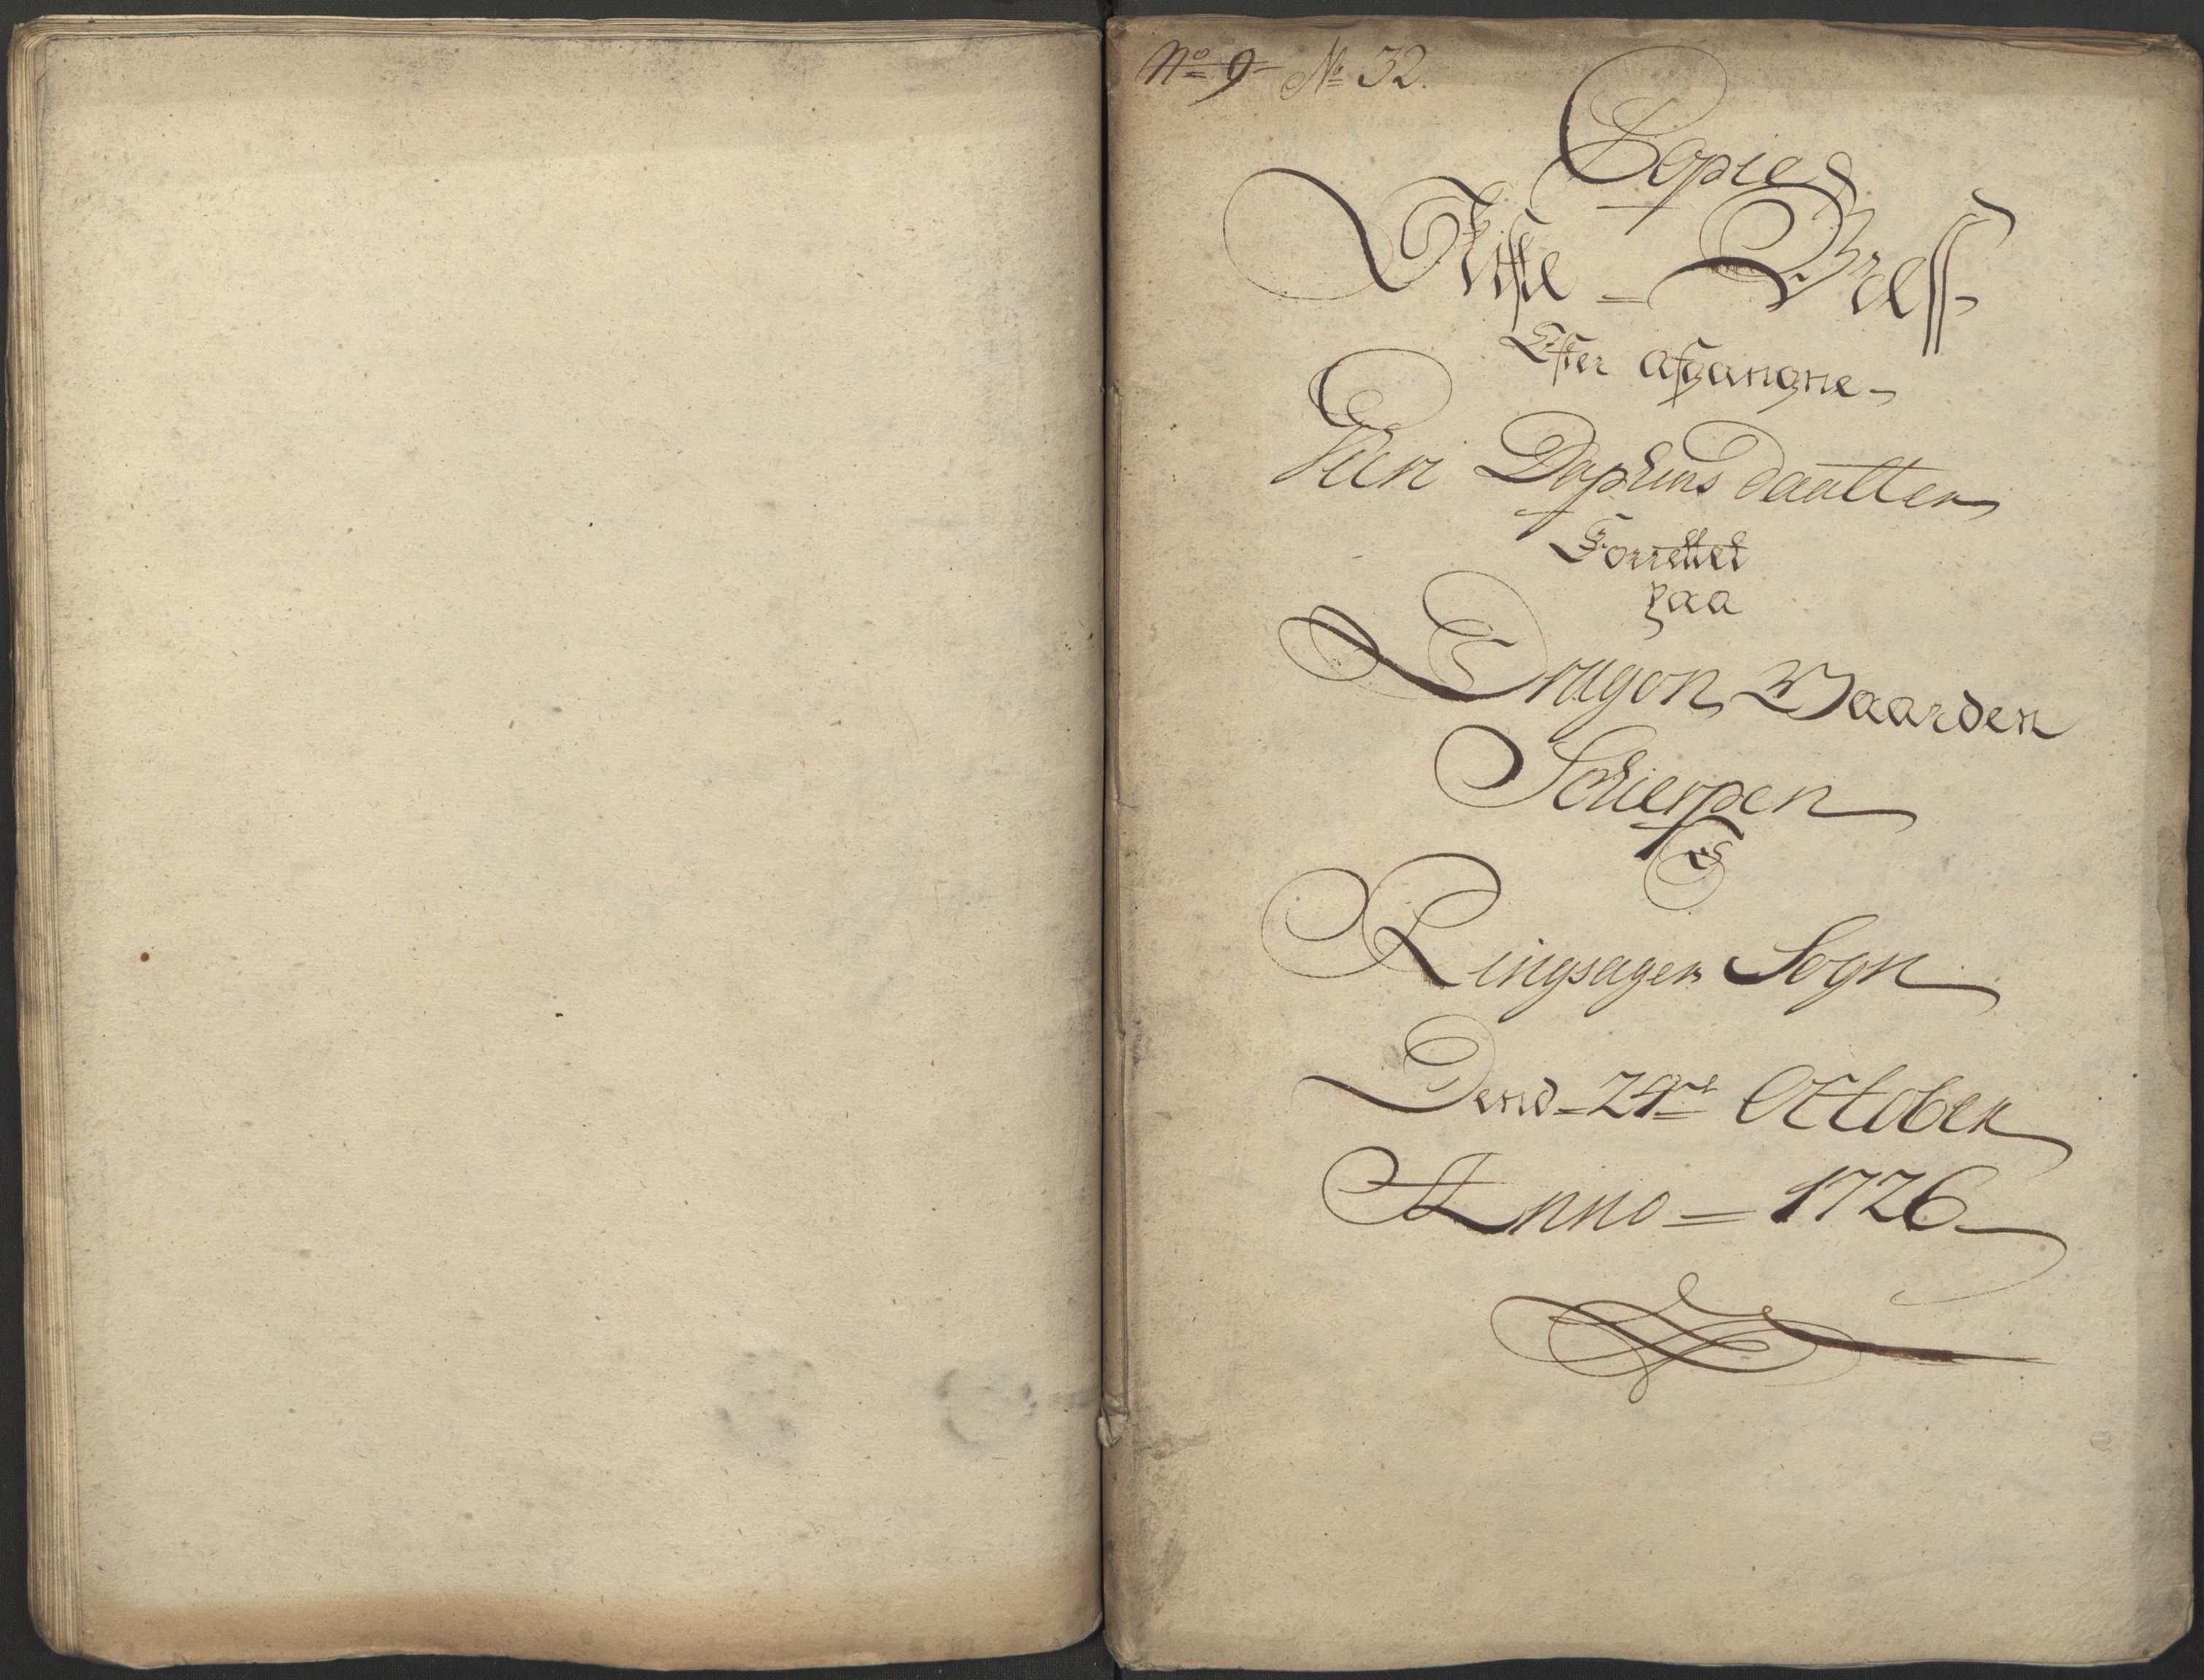 No 9 No 32.
Copie
Skifte = Breff
Efter afgangne
Daatter
Forrettet
paa
Dragon Gaarden
Schierpen
I
Ringsager Sogn
Dend 24de October
Anno = 1726